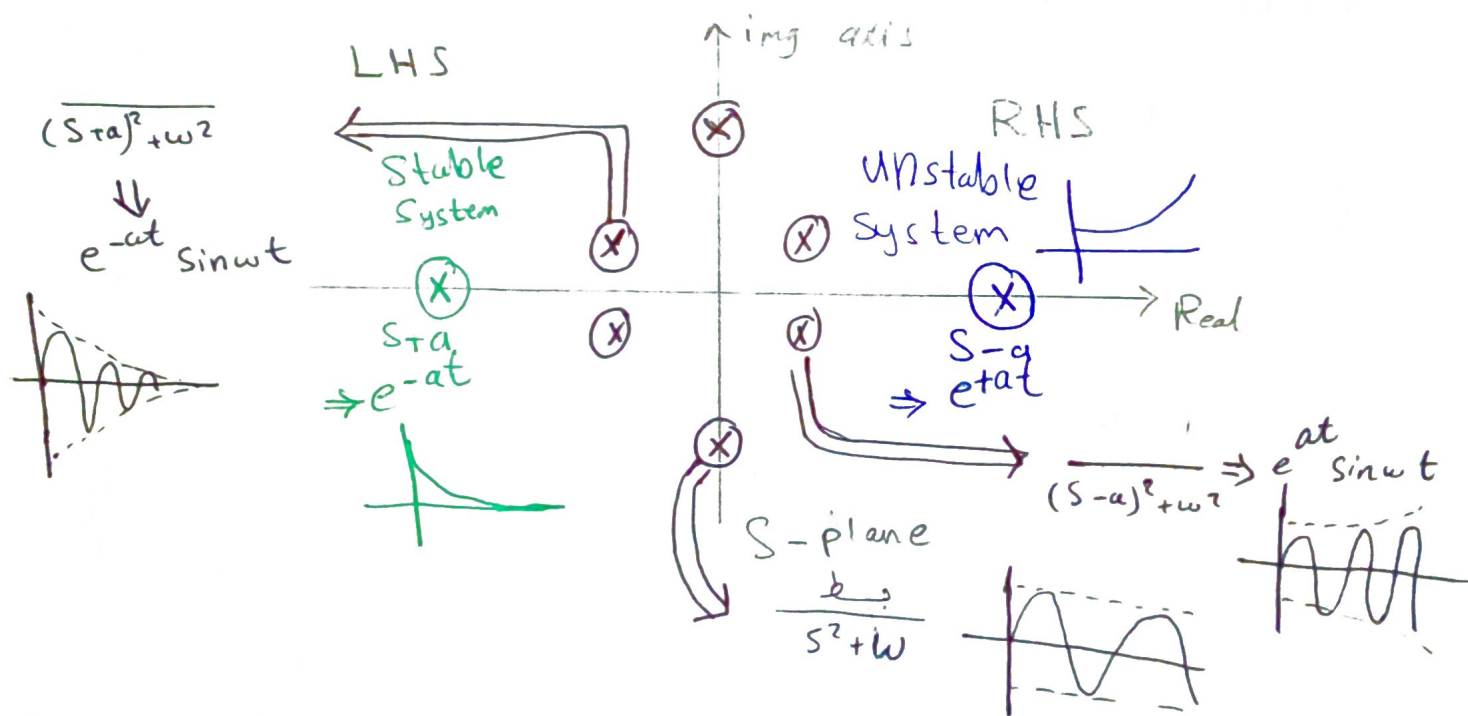 img axis
LHS
RHS
(S+a)²+ω²
⇓
e^-at sinωt
Stable
System
Unstable
System
Real
S+a
⇒ e^-at
S-a
⇒ e^+at
(S-a)²+ω² ⇒ e^at sinωt
S-plane
S²+ω